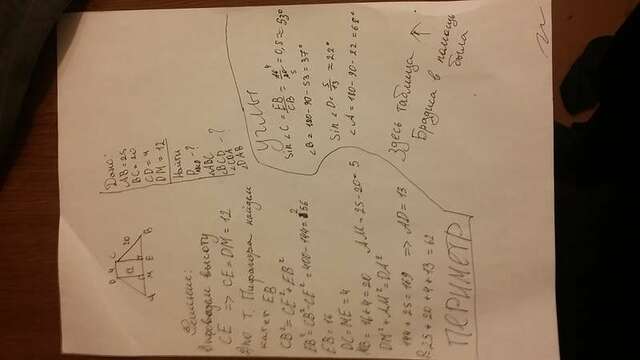 D 4 C
12
20
A M E B
Дано:
AB = 25
BC = 20
CD = 4
DM = 12
Найти
P - ?
∠ABC
∠BCD - ?
∠CBA
∠DAB
Решение:
1) проведем высоту
CE ⇒ CE = DM = 12
2) по Т. Пифагора найдем
катет EB
CB² = CE² + EB²
EB² = CB² - CE² = 400 - 144 = 256
EB = 16
DC = ME = 4
MB = 16 + 4 = 20 AM = 25 - 20 = 5
DM² + AM² = DA²
144 + 25 = 169 ⇒ AD = 13
P = 25 + 20 + 4 + 13 = 62
ПЕРИМЕТР
УГЛЫ
sin ∠C = EB/CB = 16/20 = 4/5 = 0,8 = 53°
∠B = 180 - 90 - 53 = 37°
sin ∠D = 5/13 = 22°
∠A = 180 - 90 - 22 = 68°
здесь таблица
Брадиса в помощь
была